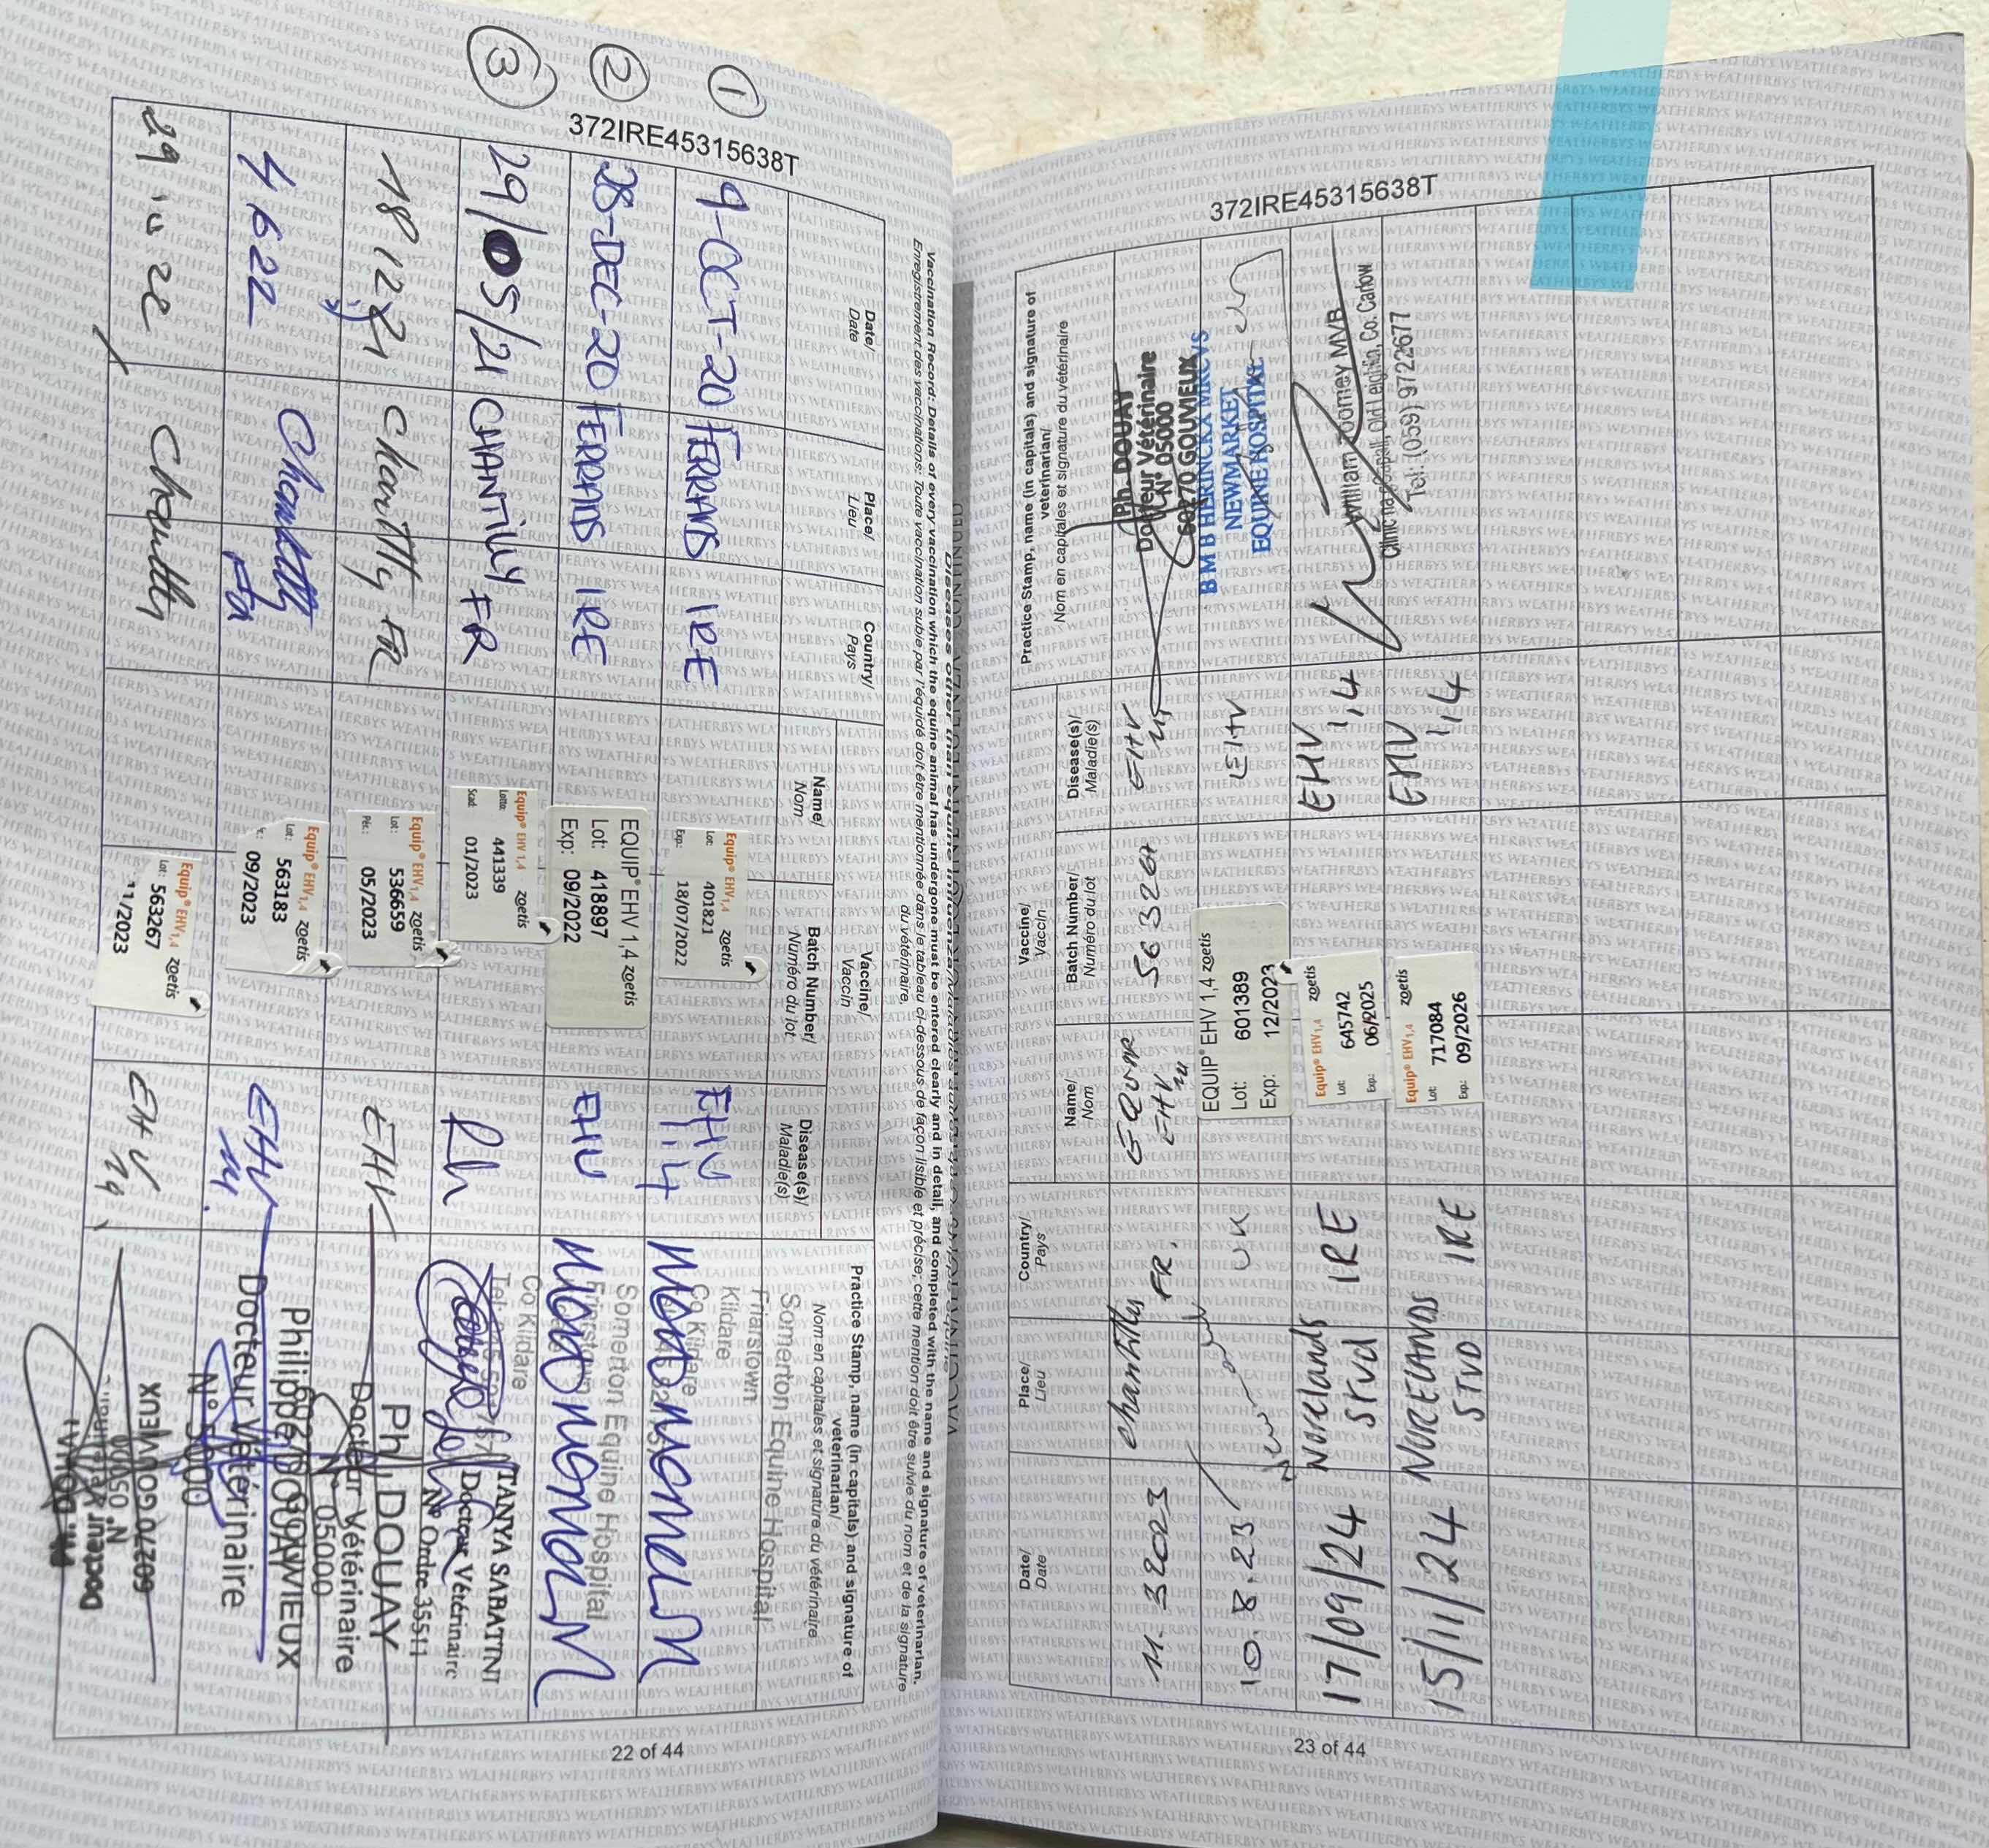 ①
②
③
372IRE45315638T
Vaccination Record: Details of every vaccination which the equine animal has undergone must be entered clearly and in detail, and completed with the name and signature of veterinarian.
Enregistrement des vaccinations: Toute vaccination subie par l'équidé doit être mentionnée dans le tableau ci-dessous de façon lisible et précise; cette mention doit être suivie du nom et de la signature
du vétérinaire.
Date/
Date
Place/
Lieu
Country/
Pays
Vaccine/
Vaccin
Name/
Nom
Batch Number/
Numéro du lot
Disease(s)/
Maladie(s)
Practice Stamp, name (in capitals) and signature of
veterinarian/
Nom en capitales et signature du vétérinaire
9-OCT-20 FERRANS IRE
Equip® EHV1,4 zoetis
Lot: 401821
Exp: 18/07/2022
EHV
1,4
Somerton Equine Hospital
Friarstown
Kildare
Co Kildare
28-DEC-20 FERRANS IRE
EQUIP® EHV 1,4 zoetis
Lot: 418897
Exp: 09/2022
EHV
Somerton Equine Hospital
Friarstown
Co Kildare
29/05/21 CHANTILLY FR
Equip® EHV 1,4 zoetis
Lotto 441339
Scad. 01/2023
TANYA SABATINI
Docteur Vétérinaire
N° Ordre 35511
18 12 21 Chantilly FR
Equip® EHV1,4 zoetis
Lot: 536659
Pér.: 05/2023
EHV
Ph. DOUAY
Docteur Vétérinaire
N° 05000
60270 GOUVIEUX
4 6 22 Chantilly
FR
Equip® EHV1,4 zoetis
Lot: 563183
09/2023
EHV
1,4
Philippe DOUAY
Docteur Vétérinaire
N° 5000
29 10 22 Chantilly
Equip® EHV1,4 zoetis
Lot: 563267
11/2023
EHV
1,4
Ph. DOUAY
Docteur Vétérinaire
N° 05000
60270 GOUVIEUX
22 of 44
372IRE45315638T
Date/
Date
Place/
Lieu
Country/
Pays
Vaccine/
Vaccin
Name/
Nom
Batch Number/
Numéro du lot
Disease(s)/
Maladie(s)
Practice Stamp, name (in capitals) and signature of
veterinarian/
Nom en capitales et signature du vétérinaire
11. 3 2023 Chantilly FR.
EHV 1,4
563267
EHV
1,4
Ph. DOUAY
Docteur Vétérinaire
N° 05000
60270 GOUVIEUX
10.8.23 Newmarket UK
EQUIP® EHV 1,4 zoetis
Lot: 601389
Exp: 12/2023
EHV
B M B HERINCKX MRCVS
NEWMARKET
EQUINE HOSPITAL
17/09/24 Norelands
Stud IRE
Equip® EHV1,4 zoetis
Lot: 645742
Exp.: 06/2025
EHV
1,4
William Toomey MVB
Old Leighlin, Co. Carlow
Tel: (059) 9722677
15/11/24 NORELANDS
STUD IRE
Equip® EHV1,4 zoetis
Lot: 717084
Exp.: 09/2026
EHV
1,4
23 of 44